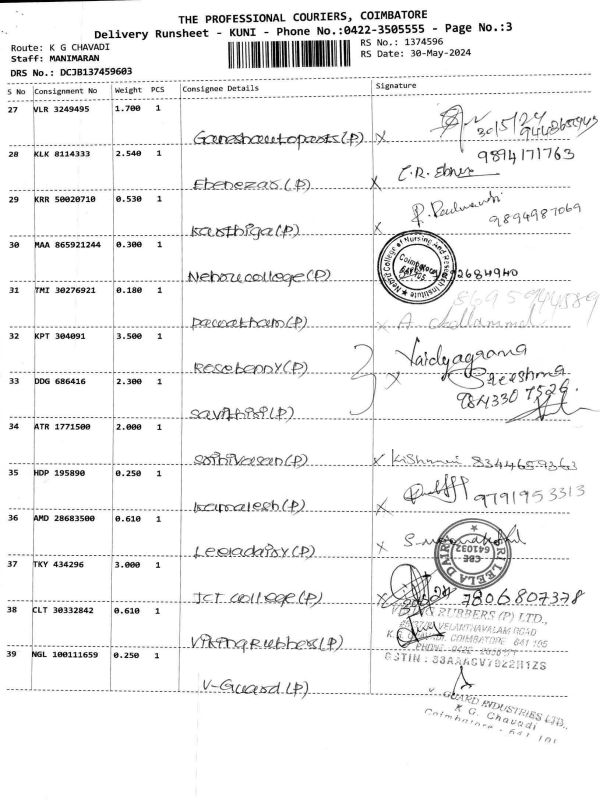 THE PROFESSIONAL COURIERS, COIMBATORE
Delivery Runsheet - KUNI - Phone No.:0422-3505555 - Page No.:3
Route: K G CHAVADI
RS No.: 1374596
Staff: MANIMARAN
RS Date: 30-May-2024
DRS No.: DCJB137459603
S No Consignment No Weight PCS Consignee Details Signature
27 VLR 3249495 1.700 1
30/5/24
9442365943
Ganeshautoparts(P) X
28 KLK 8114333 2.540 1
9894171763
Ebenezar(P) X
29 KRR 50020710 0.530 1
9894987069
Karthiga(P) X
30 MAA 865921244 0.300 1
Nehru College of Nursing And Research Institute
Coimbatore
Nehrucollege(P)
31 TMI 30276921 0.180 1
X A
32 KPT 304091 3.500 1
Vaidyagrama
Roseberry(P) X Sreeshma
33 DDG 686416 2.300 1
9843307526
Savithiri(P)
34 ATR 1771500 2.000 1
Srinivasan(P) X 8344659363
35 HDP 195890 0.250 1
9791953313
Kamalesh(P) X
36 AMD 28683500 0.610 1
SRI LEELA DAIRY
CBE
641032
Leeladairy(P) X
37 TKY 434296 3.000 1
JCT college(P) X 7806807378
38 CLT 30332842 0.610 1
RUBBERS (P) LTD.,
VELANTHAVALAM ROAD
K.G. CHAVADI, COIMBATORE 641 105
Vikingrubber(P)
PHONE: 0422
39 NGL 100111659 0.250 1
GSTIN : 33AAACV7922H1ZS
V-Guard(P)
V. GUARD INDUSTRIES LTD.,
K G. Chavadi
Coimbatore - 641 101